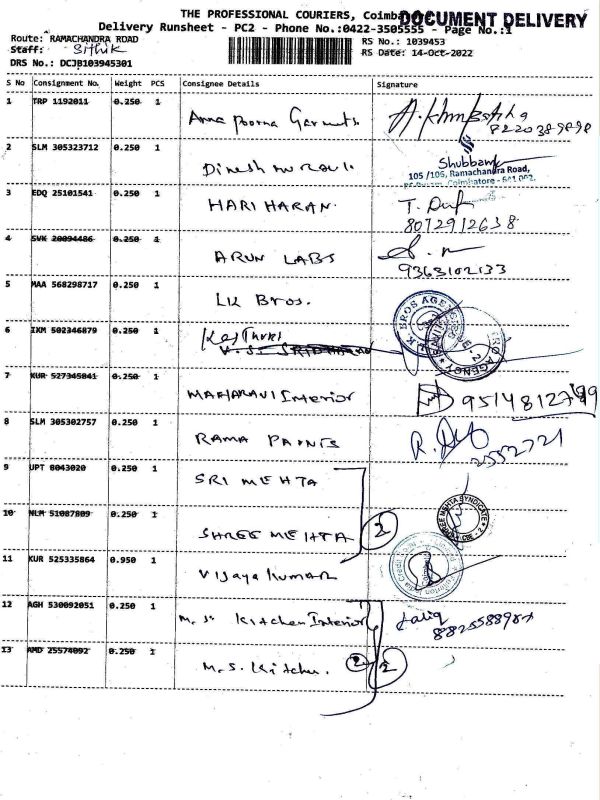 THE PROFESSIONAL COURIERS, Coimb
DOCUMENT DELIVERY
Delivery Runsheet - PC2 - Phone No.:0422-3505555 - Page No.:1
Route: RAMACHANDRA ROAD
RS No.: 1039453
Staff: Sithik
RS Date: 14-Oct-2022
DRS No.: DCJB103945301
S No Consignment No. Weight PCS Consignee Details Signature
1 TRP 1192011 0.250 1 Annapoorna Garments
8220389898
2 SLM 305323712 0.250 1 Dinesh
Shubham
105 /106, Ramachandra Road,
Coimbatore - 641 002.
3 EDQ 25101541 0.250 1 HARI HARAN
8072912638
4 SVK 20094486 0.250 1 ARUN LABS
9363102133
5 MAA 568298717 0.250 1 LK Bros.
6 IXM 502346879 0.250 1 Kasturi
7 KUR 527345841 0.250 1 MAHARANI Interior
8 SLM 305302757 0.250 1 RAMA PAINTS
2552721
9 UPT 8043020 0.250 1 SRI MEHTA
10 NLM 51087809 0.250 1 SHREE MEHTA 2
11 KUR 525335864 0.950 1 Vijaya Kumar
12 AGH 530092051 0.250 1 M.S. Kitchen Interior
13 AMD 25574092 0.250 1 M.S. Kitchen. 2 2